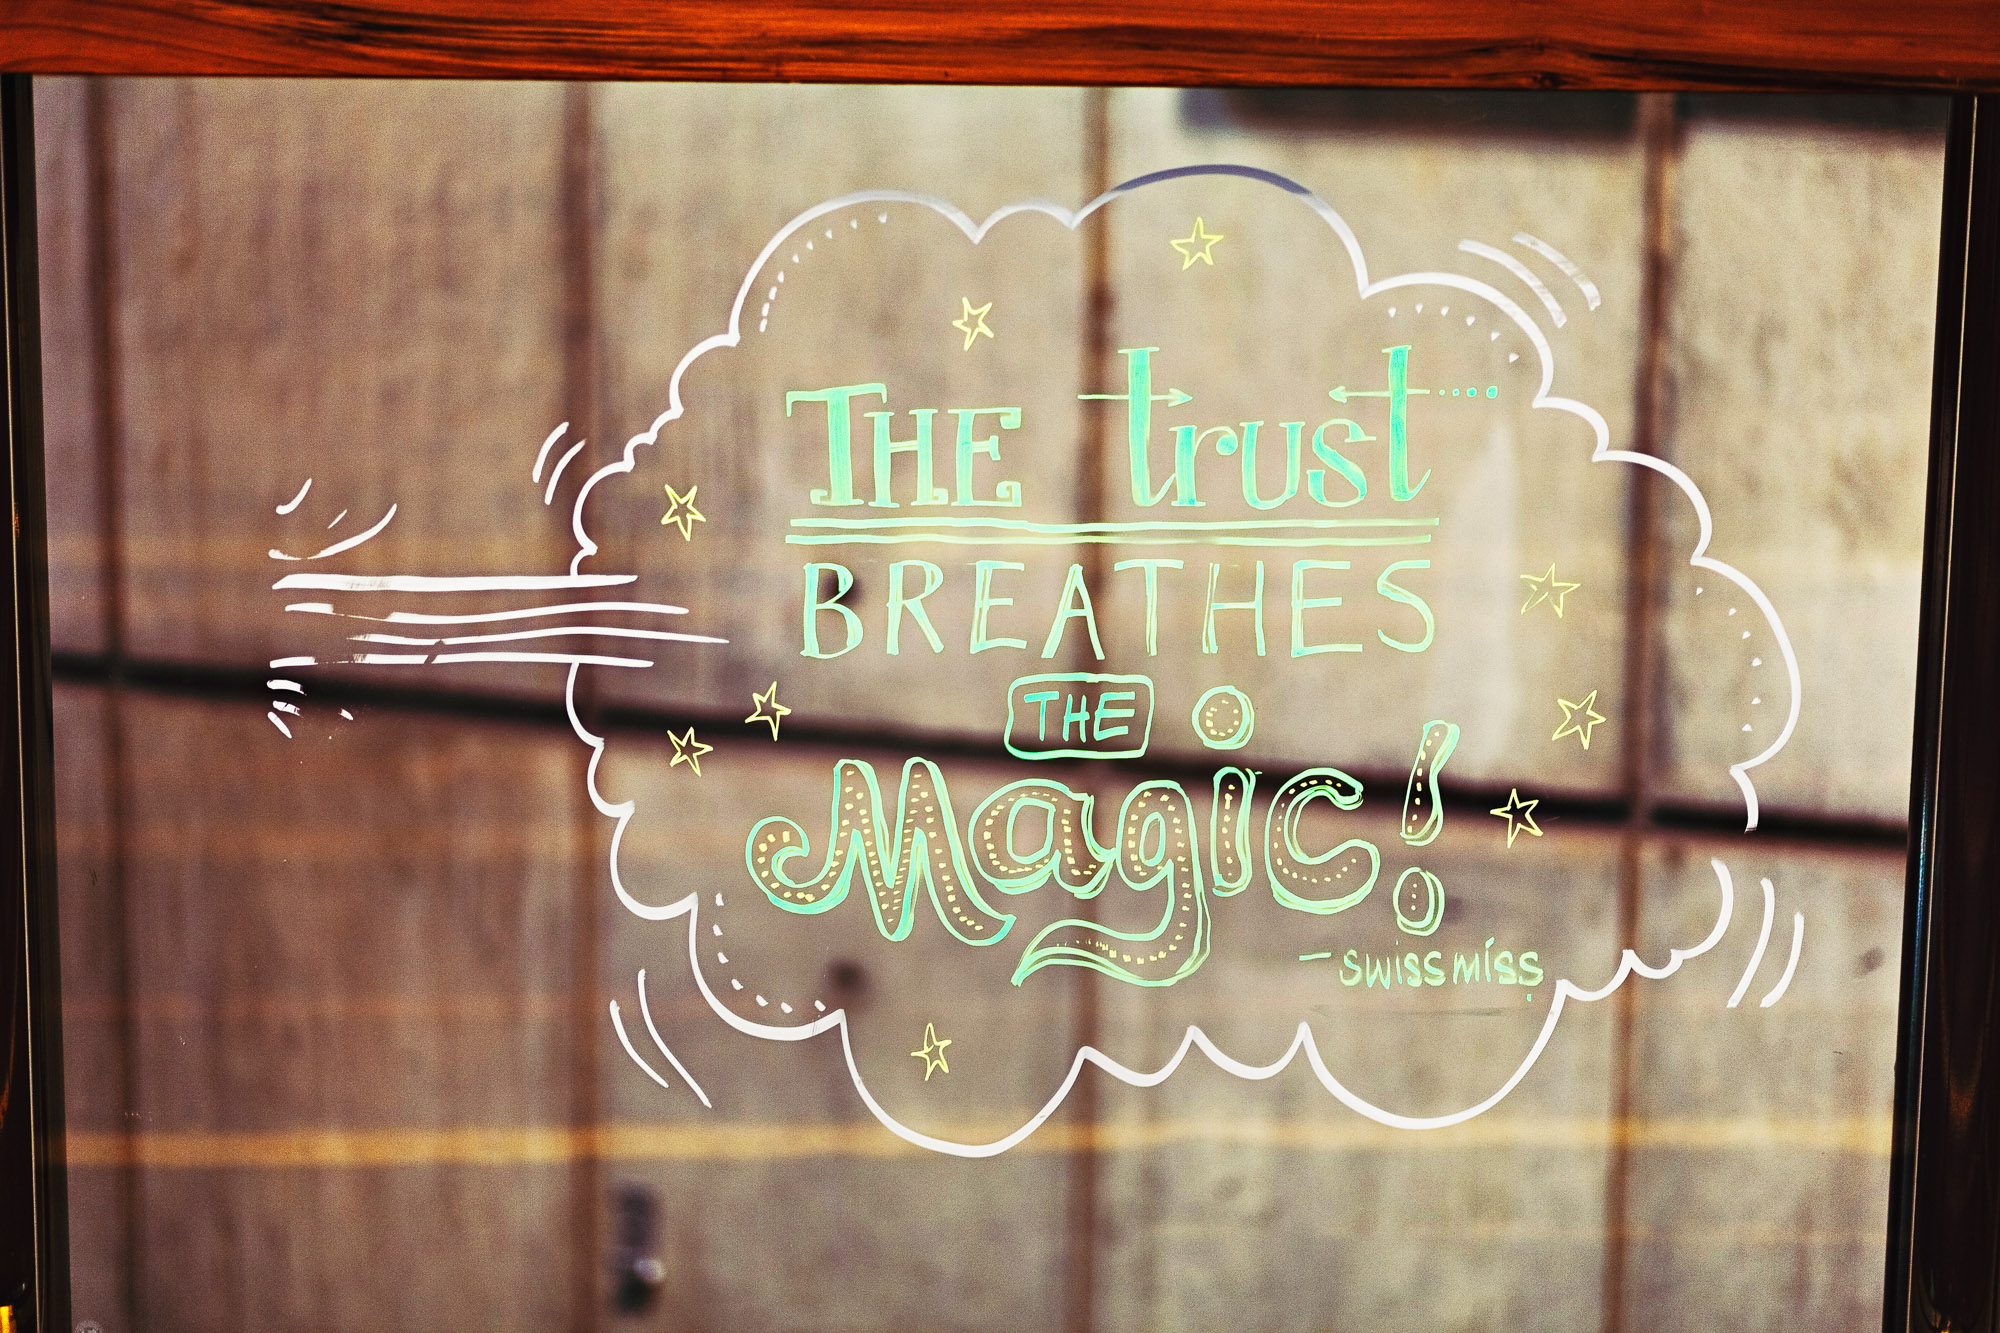 THE trust
BREATHES
THE
Magic!
- swissmiss